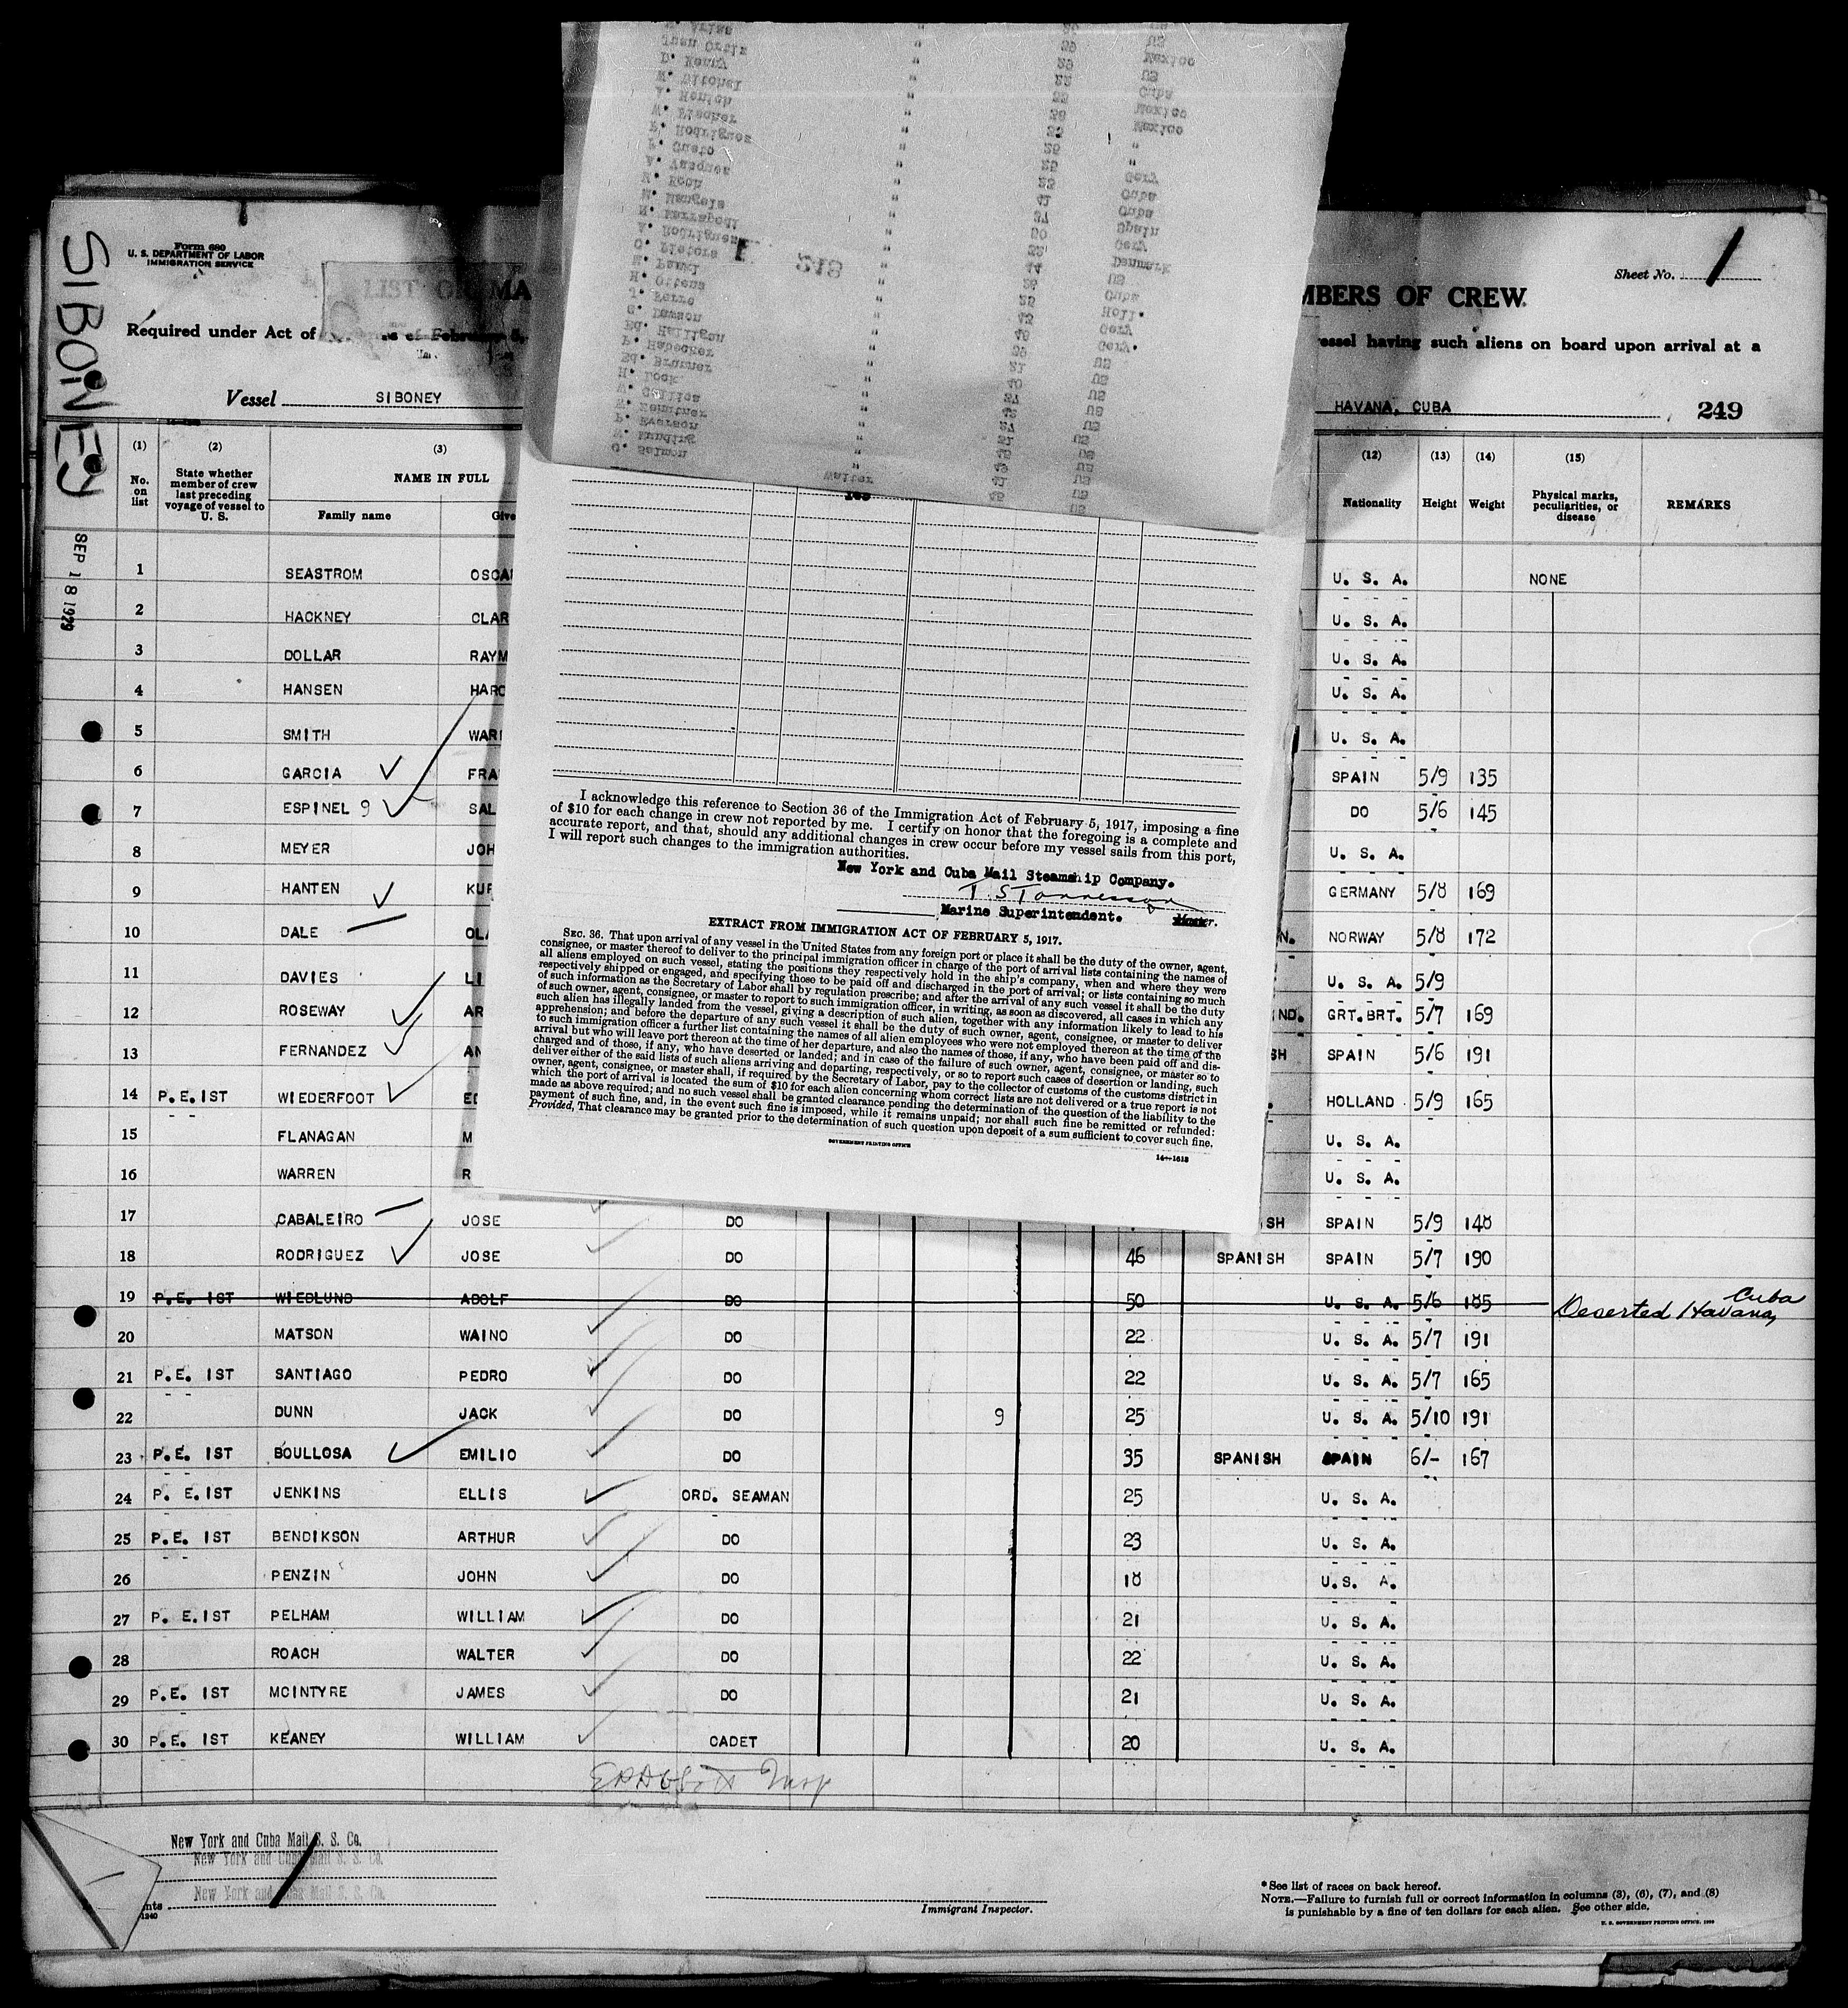 SIBONEY
SEP 18 1929
Form 680
U. S. DEPARTMENT OF LABOR
IMMIGRATION SERVICE
LIST OR MA
MBERS OF CREW
Sheet No. 1
Required under Act of
essel having such aliens on board upon arrival at a
Vessel SIBONEY
HAVANA, CUBA 249
(1) (2) (3) (12) (13) (14) (15)
No. on list
State whether member of crew last preceding voyage of vessel to U. S.
NAME IN FULL
Family name
Give
Nationality Height Weight
Physical marks, peculiarities, or disease
REMARKS
1 SEASTROM OSCA U. S. A. NONE
2 HACKNEY CLAR U. S. A.
3 DOLLAR RAYM U. S. A.
4 HANSEN HARO U. S. A.
5 SMITH WAR U. S. A.
6 GARCIA FRA SPAIN 5/9 135
7 ESPINEL 9 SAL DO 5/6 145
8 MEYER JOH U. S. A.
9 HANTEN KUR GERMANY 5/8 169
10 DALE OLA N. NORWAY 5/8 172
11 DAVIES LI U. S. A. 5/9
12 ROSEWAY AR ND. GRT.BRT. 5/7 169
13 FERNANDEZ AN SH SPAIN 5/6 191
14 P.E.IST WIEDERFOOT ED HOLLAND 5/9 165
15 FLANAGAN M U. S. A.
16 WARREN R U. S. A.
17 CABALEIRO JOSE DO SH SPAIN 5/9 148
18 RODRIGUEZ JOSE DO 46 SPANISH SPAIN 5/7 190
19 P.E. IST WIEDLUND ADOLF DO 50 U. S. A. 5/6 185 Deserted Havana, Cuba
20 MATSON WAINO DO 22 U. S. A. 5/7 191
21 P.E. IST SANTIAGO PEDRO DO 22 U. S. A. 5/7 165
22 DUNN JACK DO 9 25 U. S. A. 5/10 191
23 P.E. IST BOULLOSA EMILIO DO 35 SPANISH SPAIN 6/- 167
24 P. E.IST JENKINS ELLIS ORD. SEAMAN 25 U. S. A.
25 P.E. IST BENDIKSON ARTHUR DO 23 U. S. A.
26 PENZIN JOHN DO 18 U.S. A.
27 P. E.IST PELHAM WILLIAM DO 21 U. S. A.
28 ROACH WALTER DO 22 U. S. A.
29 P.E. IST MCINTYRE JAMES DO 21 U. S. A.
30 P.E. IST KEANEY WILLIAM CADET 20 U. S. A.
New York and Cuba Mail S. S. Co.
New York and Cuba Mail S. S. Co.
New York and Cuba Mail S. S. Co.
Immigrant Inspector.
*See list of races on back hereof.
NOTE.—Failure to furnish full or correct information in columns (3), (6), (7), and (8)
is punishable by a fine of ten dollars for each alien. See other side.
U. S. GOVERNMENT PRINTING OFFICE
Juan Ortiz " 29 Mexico
D. Kenny
A. Henich
W. Fischer
F. Rodriguez
F. Cueto
A. Vazquez
K. Koch
M. Mangels
A. Rodriguez
O. Pieters
H. Ottens
J. Ferro
G. Dawson
Ed. Halligan
P. Habecker
Ed. Brunner
H. Lock
P. Everson
W. Munding
G. Salmon
Walter
248
I acknowledge this reference to Section 36 of the Immigration Act of February 5, 1917, imposing a fine
of $10 for each change in crew not reported by me. I certify on honor that the foregoing is a complete and
accurate report, and that, should any additional changes in crew occur before my vessel sails from this port,
I will report such changes to the immigration authorities.
New York and Cuba Mail Steamship Company.
Marine Superintendent. Master.
EXTRACT FROM IMMIGRATION ACT OF FEBRUARY 5, 1917.
SEC. 36. That upon arrival of any vessel in the United States from any foreign port or place it shall be the duty of the owner, agent,
consignee, or master thereof to deliver to the principal immigration officer in charge of the port of arrival lists containing the names of
all aliens employed on such vessel, stating the positions they respectively hold in the ship's company, when and where they were
respectively shipped or engaged, and specifying those to be paid off and discharged in the port of arrival; or lists containing so much
of such information as the Secretary of Labor shall by regulation prescribe; and after the arrival of any such vessel it shall be the duty
of such owner, agent, consignee, or master to report to such immigration officer, in writing, as soon as discovered, all cases in which any
such alien has illegally landed from the vessel, giving a description of such alien, together with any information likely to lead to his
apprehension; and before the departure of any such vessel it shall be the duty of such owner, agent, consignee, or master to deliver
to such immigration officer a further list containing the names of all alien employees who were not employed thereon at the time of the
arrival but who will leave port thereon at the time of her departure, and also the names of those, if any, who have been paid off and dis-
charged and of those, if any, who have deserted or landed; and in case of the failure of such owner, agent, consignee, or master so to
deliver either of the said lists of such aliens arriving and departing, respectively, or so to report such cases of desertion or landing, such
owner, agent, consignee, or master shall, if required by the Secretary of Labor, pay to the collector of customs of the customs district in
which the port of arrival is located the sum of $10 for each alien concerning whom correct lists are not delivered or a true report is not
made as above required; and no such vessel shall be granted clearance pending the determination of the question of the liability to the
payment of such fine, and, in the event such fine is imposed, while it remains unpaid; nor shall such fine be remitted or refunded:
Provided, That clearance may be granted prior to the determination of such question upon deposit of a sum sufficient to cover such fine.
GOVERNMENT PRINTING OFFICE
14—1618